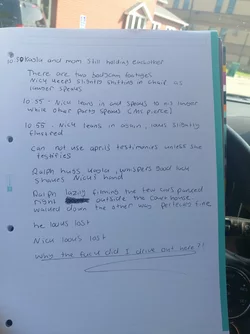 10:50 Kaala and mom still holding eachother
There are two bodycam footages
Nicu keeps slightly shifting in chair as
lawyer speaks
10:55 - Nicu leans in and speaks to his lawyer
while other party speaks (Mr. Pierce)
10:55 - Nicu leans in again, looks slightly
flustered
can not use aprils testimonies unless she
testifies
Ralph hugs whispers good luck
shakes Nicu's hand
Ralph filming the two cars parked
right outside the court house
walked down the other way perfectly fine
he looks lost
Nicu looks lost
way the fuck did I drive out here?!